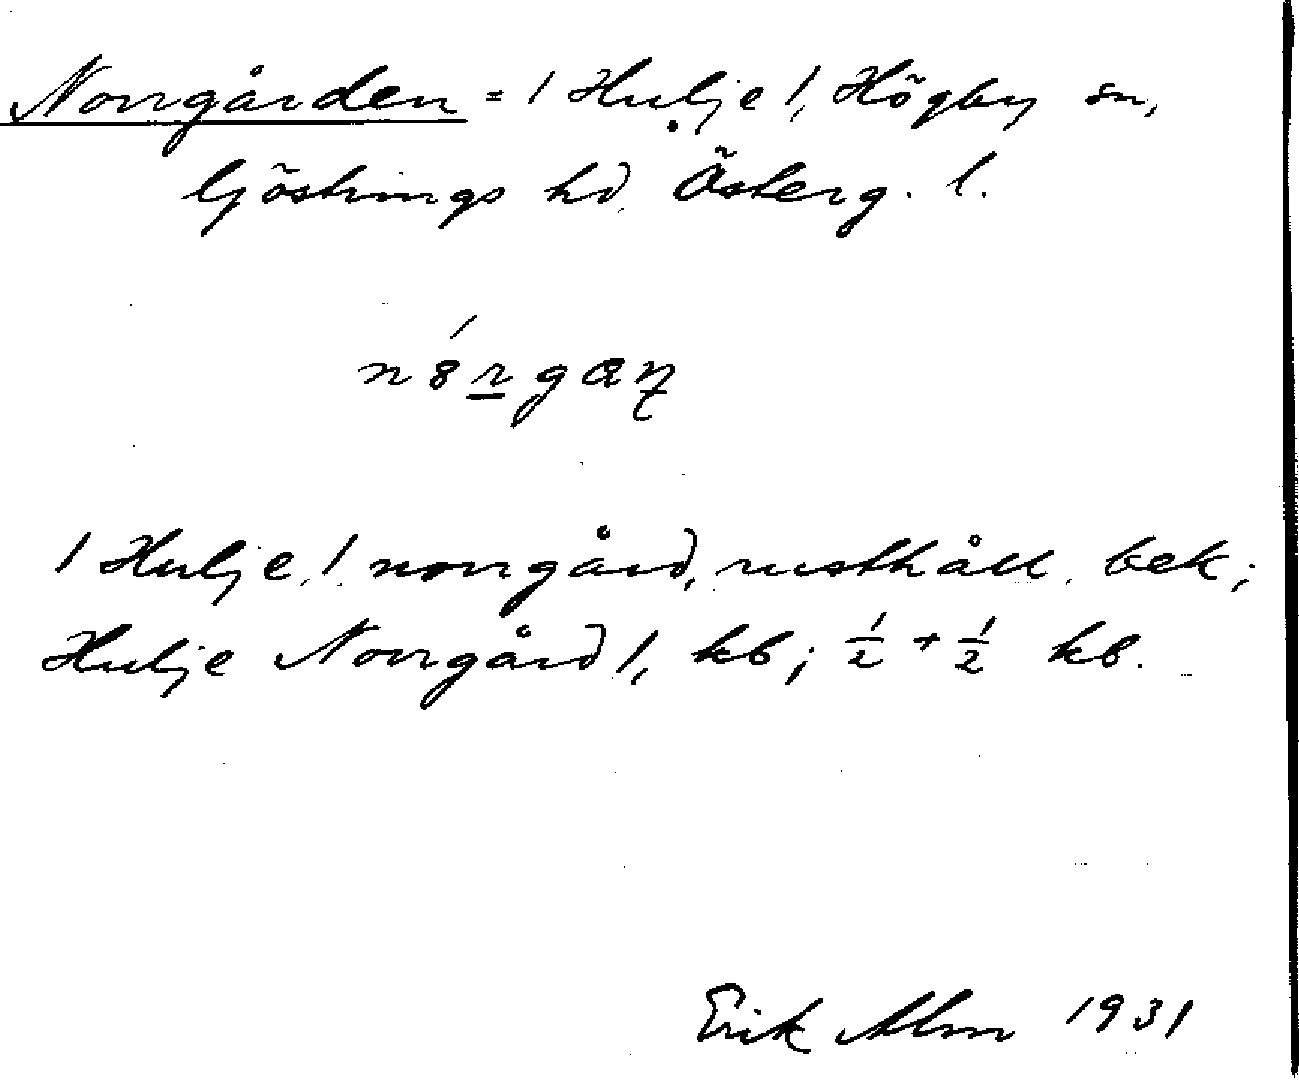 Norrgården = / Hulje /, Högby sn,
Göstrings hd. Österg. l.
/ Hulje, /. norrgård, rusthåll, bek;
Hulje Norrgård /, kb; ½ + ½ kb.
Erik Alm 1931